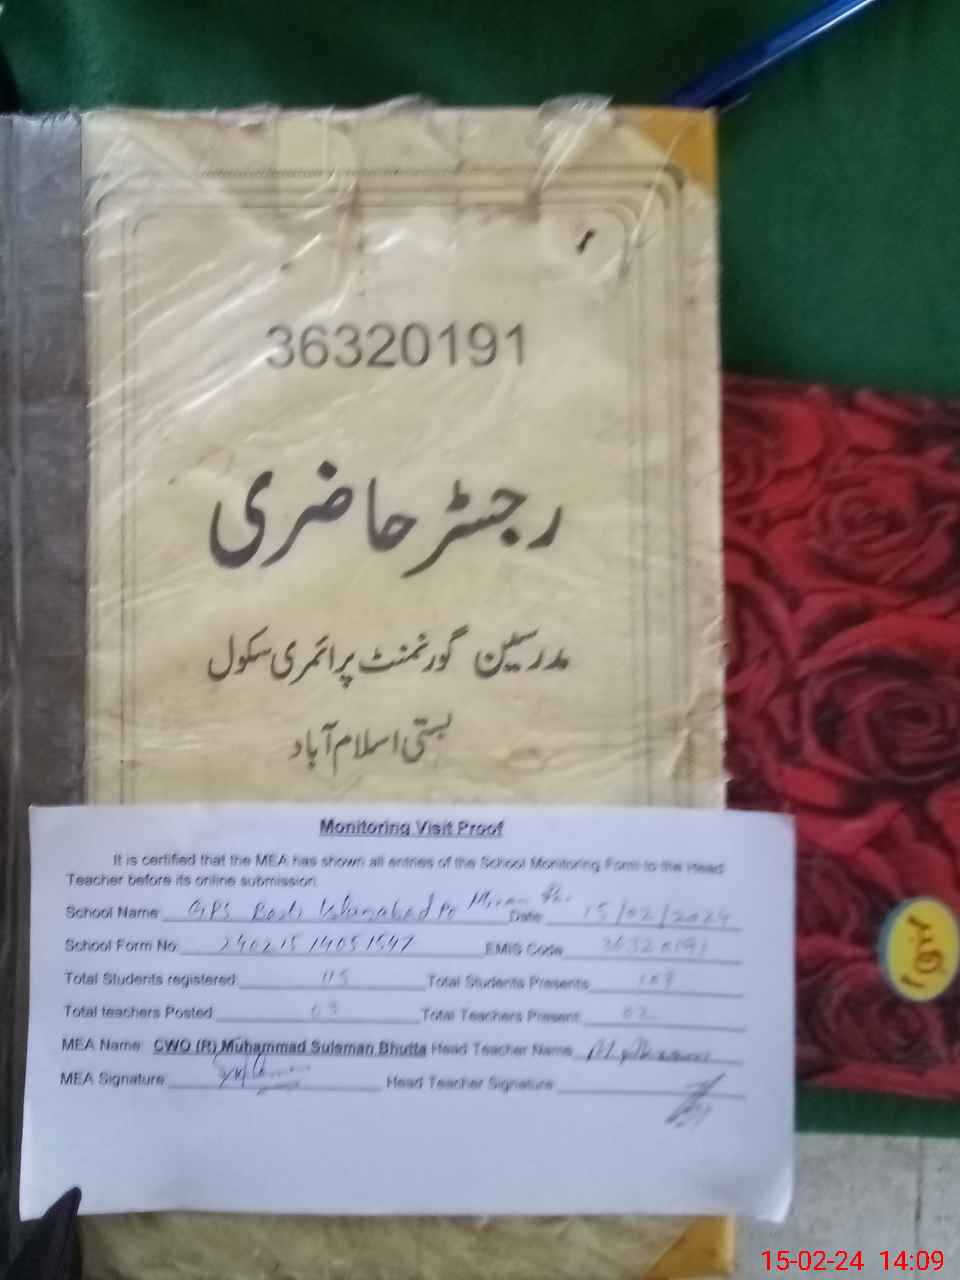 36320191
رجسٹر حاضری
مدرسین گورنمنٹ پرائمری سکول
بستی اسلام آباد
Monitoring Visit Proof
It is certified that the MEA has shown all entries of the School Monitoring Form to the Head
Teacher before its online submission.
School Name: GPS Basti Islamabad Po Date: 15/02/2024
School Form No: 24021514051547 EMIS Code 36320191
Total Students registered: 115 Total Students Presents 109
Total teachers Posted: 03 Total Teachers Present: 02
MEA Name: CWO (R) Muhammad Suleman Bhutta Head Teacher Name
MEA Signature: Head Teacher Signature:
15-02-24 14:09